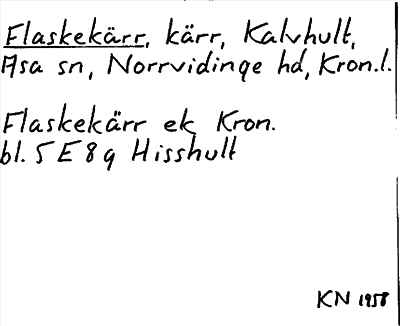 Flaskekärr, kärr, Kalvhult,
Asa sn, Norrvidinge hd, Kron.l.
Flaskekärr ek Kron.
bl. 5 E 8 g Hisshult
KN 1958